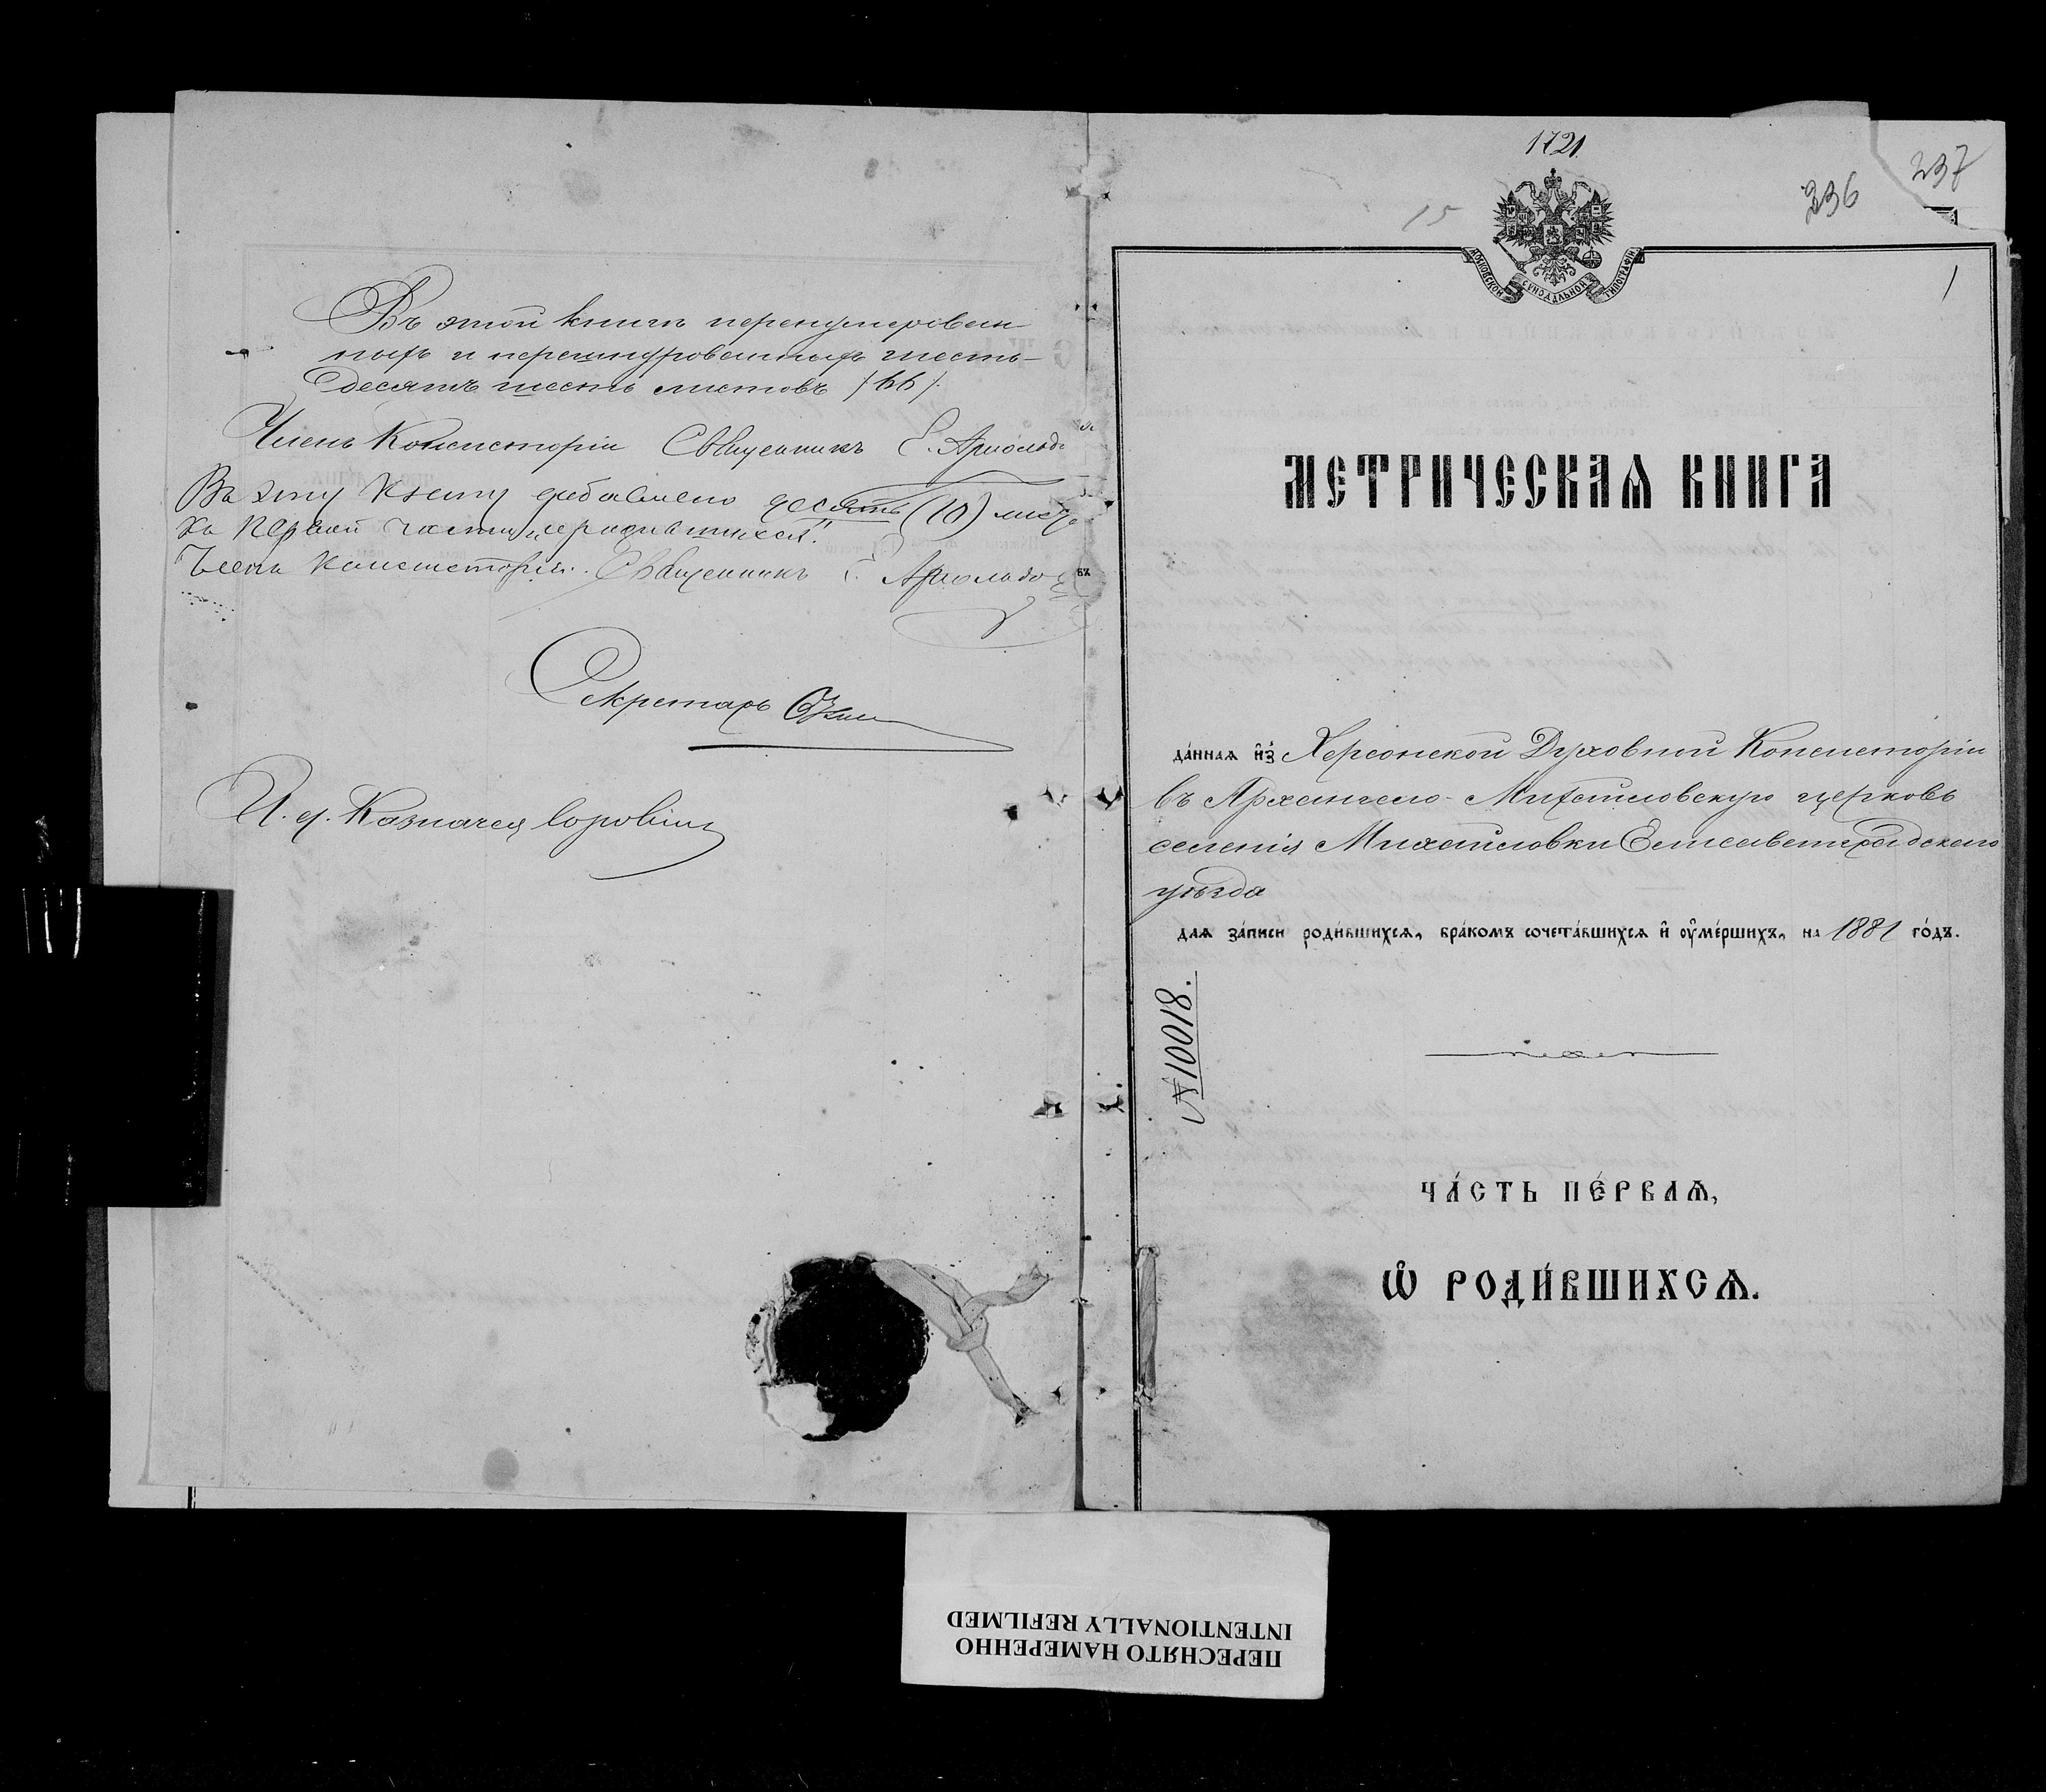 Въ этой книгѣ перенумерован-
ныхъ и перешнурованныхъ шесть-
десятъ шесть листовъ /66/.
Членъ Консисторіи Священникъ Е. Арнольдо
Въ эту книгу добавлено десять (10) листо
къ первой части „о родившихся".
Членъ Консисторіи Священникъ Е. Арнольдо
Секретарь
И. д. Казначея
1721.
15
236
237
МОСКОВСКОЙ СѴНОДАЛЬНОЙ ТИПОГРАФІИ
1
МЕТРИЧЕСКАѦ КНИГА
да́ннаѧ и҆з̾ Херсонской Духовной Консисторіи
въ Архангело-Михайловскую церковь
селенія Михайловки Елисаветградскаго
уѣзда
длѧ за́писи роди́вшихсѧ, бра́комъ сочета́вшихсѧ и҆ оу҆ме́ршихъ, на 1881 го́дъ.
№ 10018.
ЧА́СТЬ ПЕ́РВАѦ,
Ѡ҆ РОДИ́ВШИХСѦ.
ПЕРЕСНЯТО НАМЕРЕННО
INTENTIONALLY REFILMED